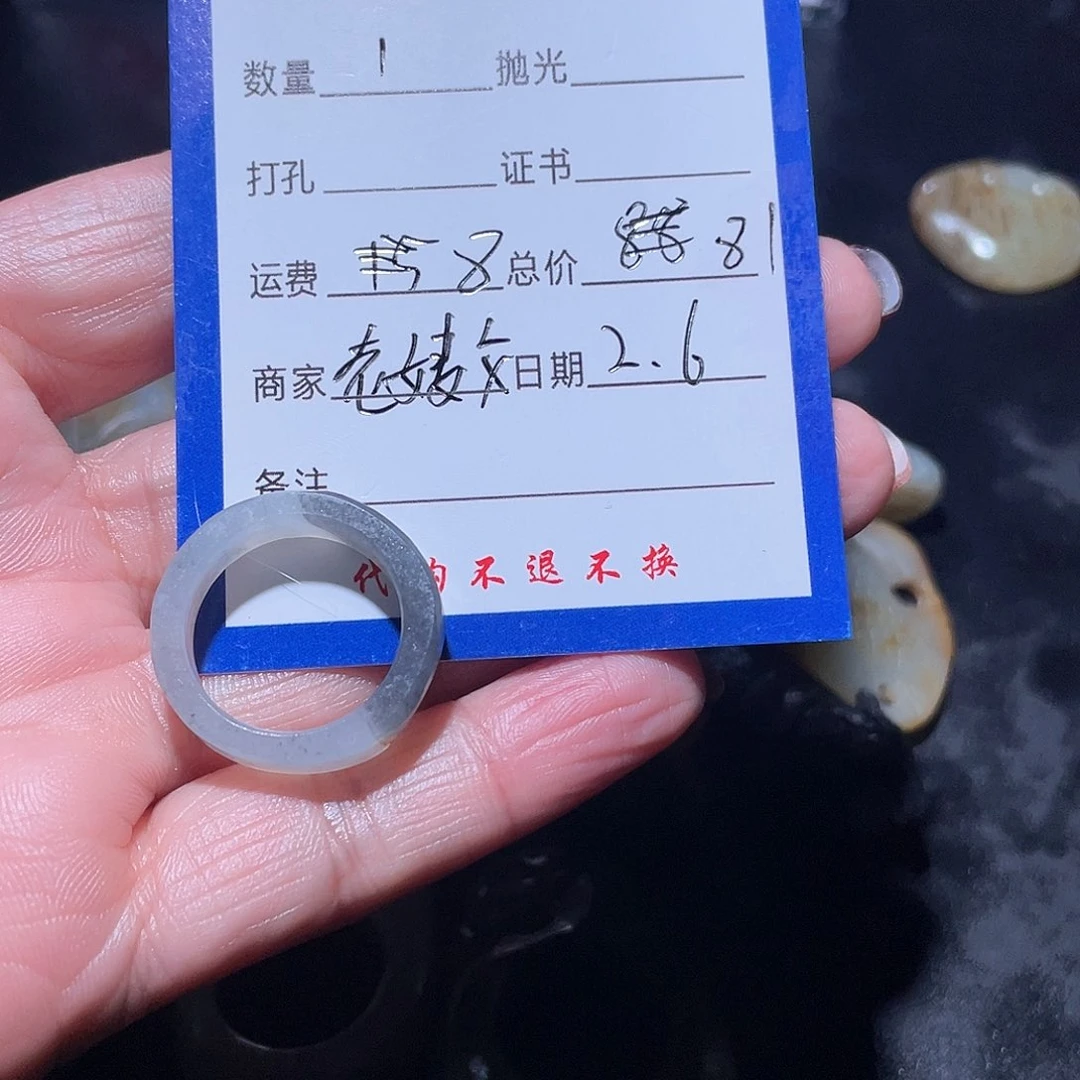 数量 1 抛光
打孔 证书
运费 8 总价 81
商家 日期 2.6
备注
代购不退不换